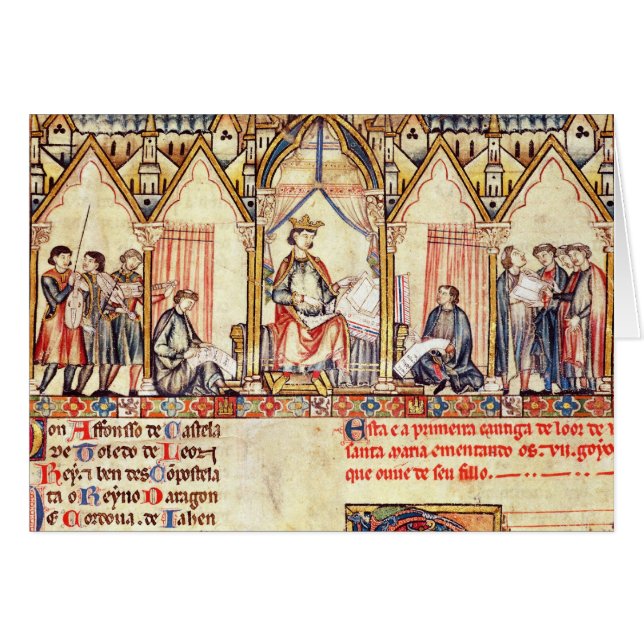 Don Affonsso de Castela
de Toledo de Leon
Rey. τ ben des Cōpostela
ta o Reyno daragon
E Cordoua. de Iahen
Esta e a primeira cantiga de loor de
santa maria ementando os. vii. goyos
que ouue de seu fillo.